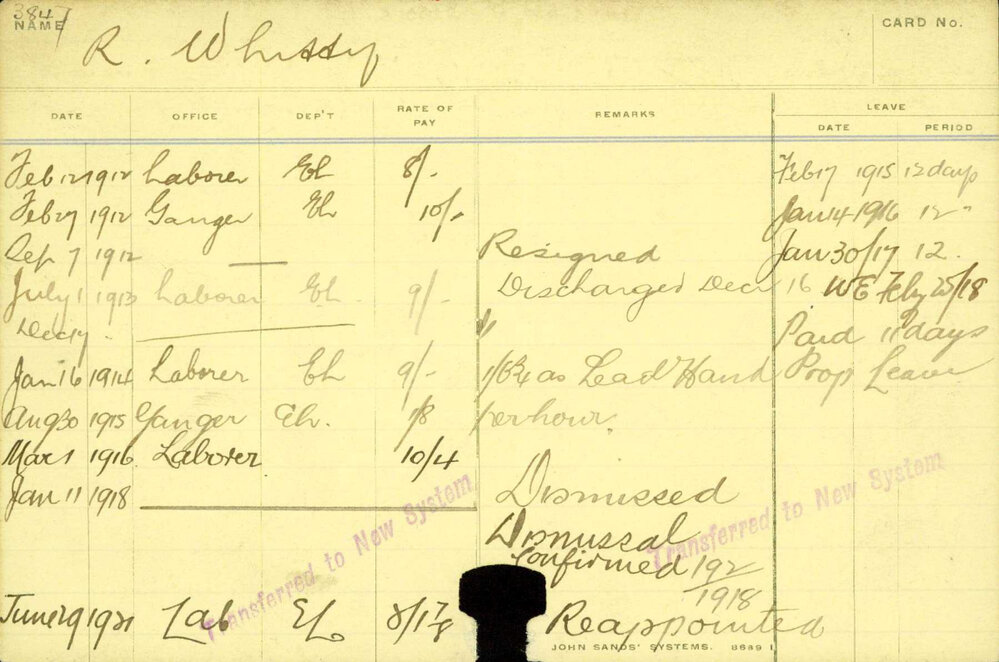 384
NAME
R. Whitty
CARD No.
DATE OFFICE DEP'T RATE OF PAY REMARKS LEAVE
DATE PERIOD
Feb 12 1912 Laborer Eh 8/- Feb 17 1915 12 days
Feb 27 1912 Ganger Eh 10/- Jan 14 1916 12 "
Sep 7 1912 Resigned Jan 30/17 12.
July 1 1913 Laborer Eh. 9/- Discharged Decr 16 WE Feby 25/18
Dec 17. Paid 11 days
Jan 16 1914 Laborer Eh 9/- as Lead Hand Prop Leave
Aug 30 1915 Ganger Eh. 1/8 per hour.
Mar 1 1916 Laborer 10/4
Jan 11 1918 Dismissed
Dismissal
Confirmed 192/1918
Transferred to New System
Transferred to New System
June 29 1921 Lab EL Reappointed
JOHN SANDS' SYSTEMS. 8689